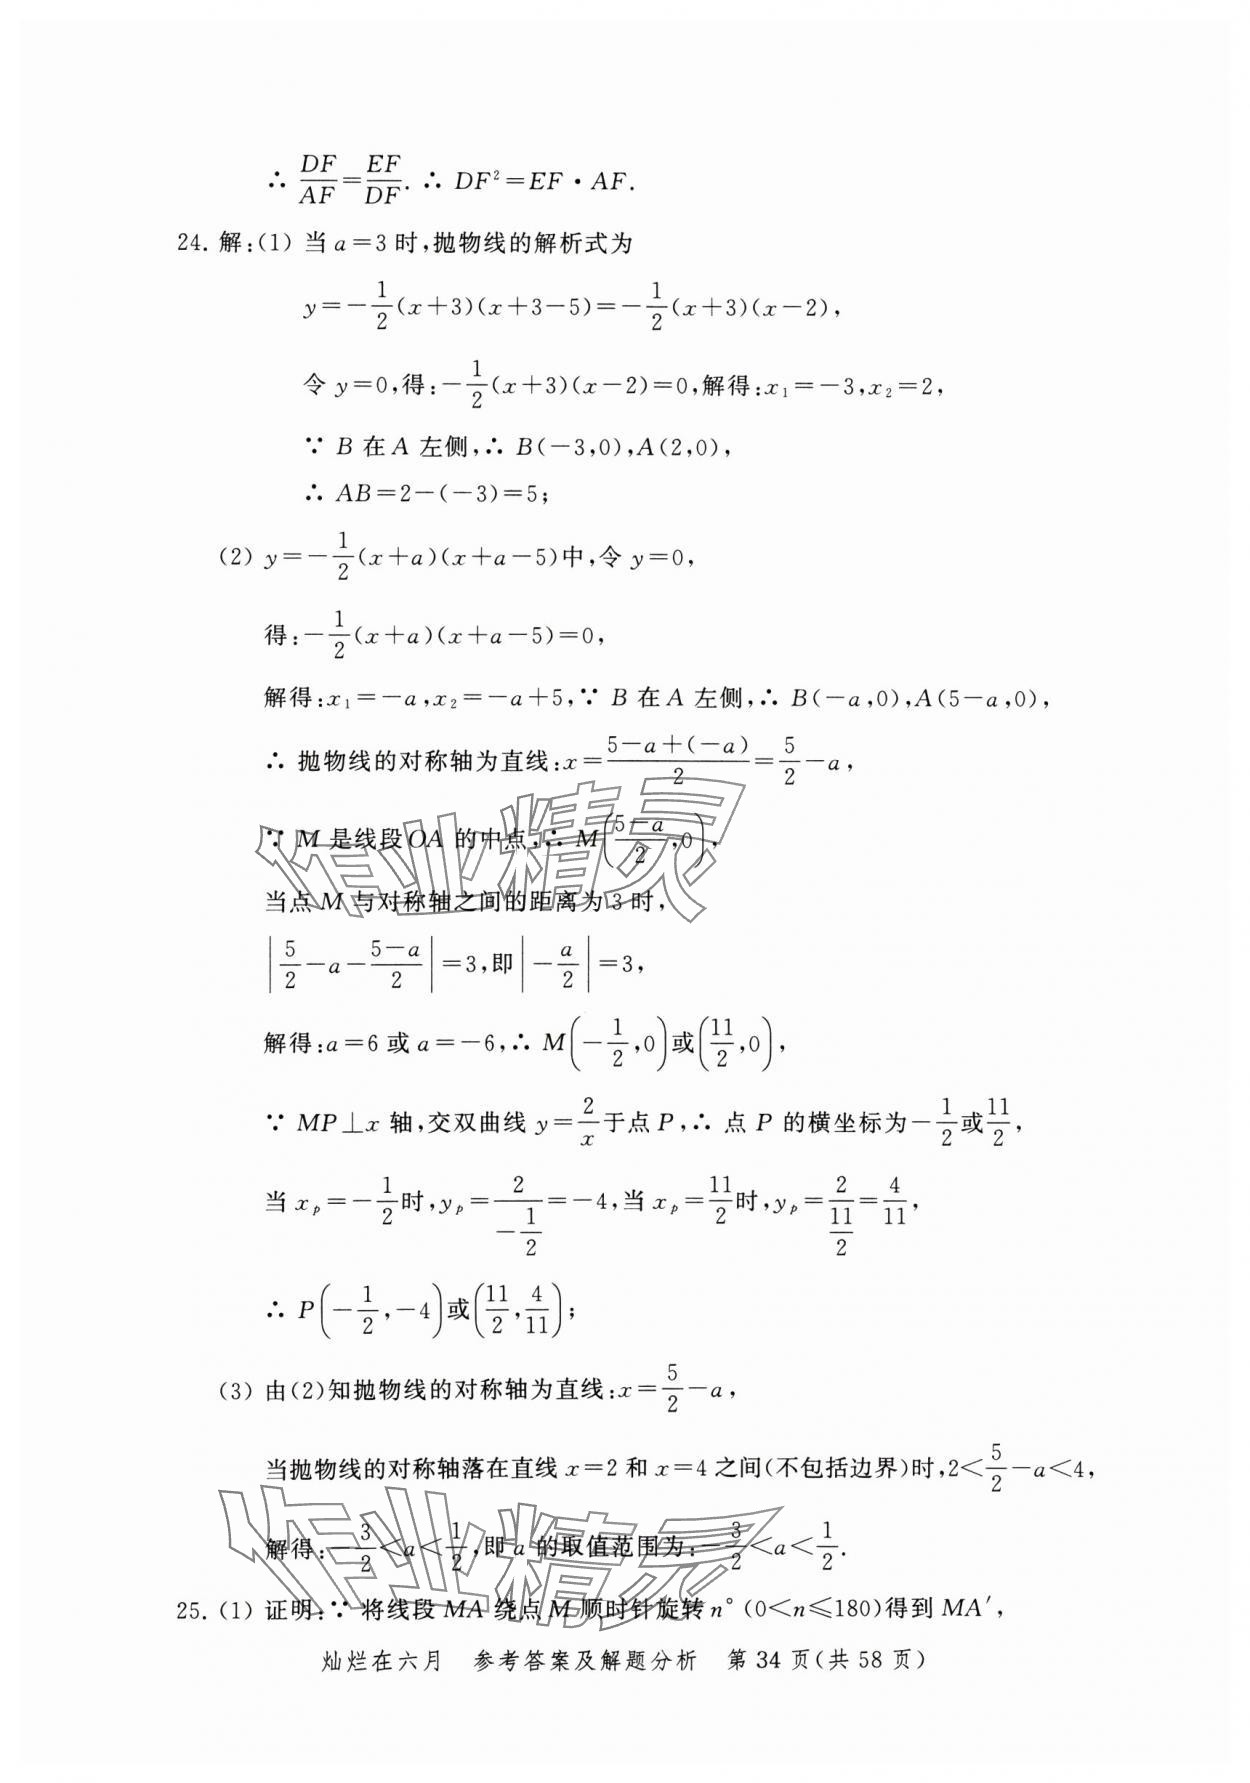 ∴ DF/AF=EF/DF. ∴ DF²=EF·AF.
24. 解:(1) 当 a=3 时,抛物线的解析式为
y=-1/2(x+3)(x+3-5)=-1/2(x+3)(x-2),
令 y=0,得:-1/2(x+3)(x-2)=0,解得:x₁=-3,x₂=2,
∵ B 在 A 左侧,∴ B(-3,0),A(2,0),
∴ AB=2-(-3)=5;
(2) y=-1/2(x+a)(x+a-5)中,令 y=0,
得:-1/2(x+a)(x+a-5)=0,
解得:x₁=-a,x₂=-a+5,∵ B 在 A 左侧,∴ B(-a,0),A(5-a,0),
∴ 抛物线的对称轴为直线:x=(5-a+(-a))/2=5/2-a,
∵ M 是线段 OA 的中点,∴ M((5-a)/2,0),
当点 M 与对称轴之间的距离为 3 时,
|5/2-a-(5-a)/2|=3,即|-a/2|=3,
解得:a=6 或 a=-6,∴ M(-1/2,0)或(11/2,0),
∵ MP⊥x 轴,交双曲线 y=2/x 于点 P,∴ 点 P 的横坐标为-1/2或11/2,
当 xₚ=-1/2时,yₚ=2/(-1/2)=-4,当 xₚ=11/2时,yₚ=2/(11/2)=4/11,
∴ P(-1/2,-4)或(11/2,4/11);
(3) 由(2)知抛物线的对称轴为直线:x=5/2-a,
当抛物线的对称轴落在直线 x=2 和 x=4 之间(不包括边界)时,2<5/2-a<4,
解得:-3/2<a<1/2,即 a 的取值范围为:-3/2<a<1/2.
25. (1) 证明:∵ 将线段 MA 绕点 M 顺时针旋转 n°(0<n≤180)得到 MA′,
灿烂在六月 参考答案及解题分析 第 34 页(共 58 页)
作业精灵
作业精灵